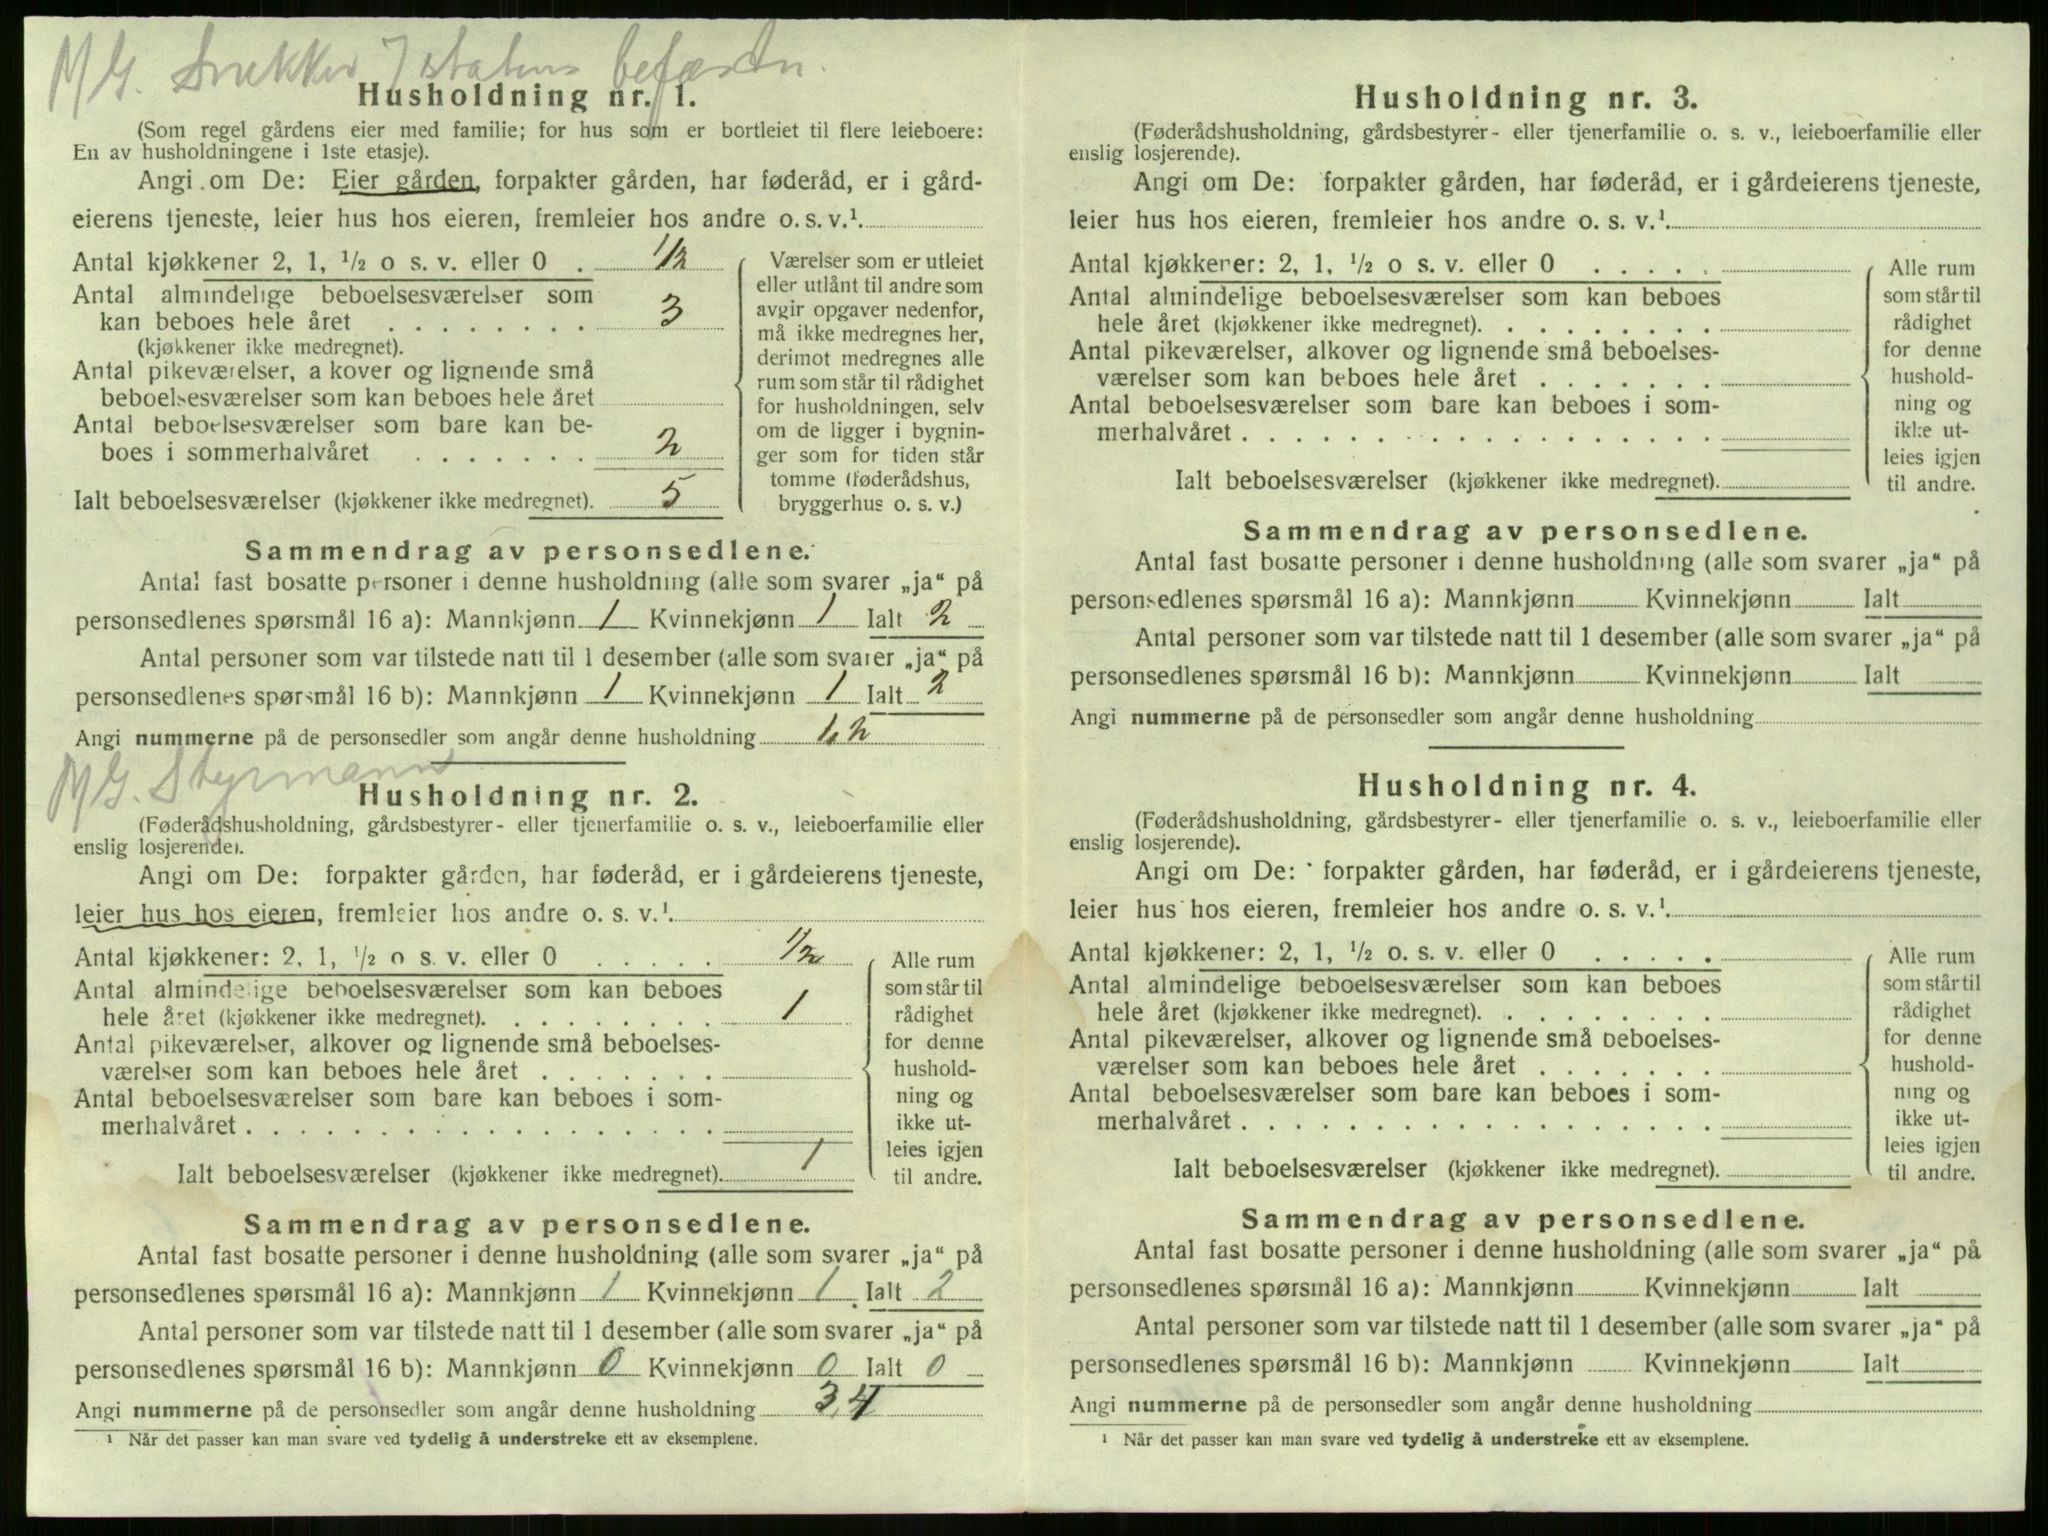 M G. Snekker I statens befæstn.
Husholdning nr. 1.
(Som regel gårdens eier med familie; for hus som er bortleiet til flere leieboere:
En av husholdningene i 1ste etasje).
Angi om De: Eier gården, forpakter gården, har føderåd, er i gård-
eierens tjeneste, leier hus hos eieren, fremleier hos andre o. s. v.¹.
Antal kjøkkener 2, 1, ½ o s. v. eller 0 . 1/2
Antal almindelige beboelsesværelser som
kan beboes hele året . . . . . . . . 3
(kjøkkener ikke medregnet).
Antal pikeværelser, a kover og lignende små
beboelsesværelser som kan beboes hele året
Antal beboelsesværelser som bare kan be-
boes i sommerhalvåret . . . . . . . 2
Ialt beboelsesværelser (kjøkkener ikke medregnet). 5
Værelser som er utleiet
eller utlånt til andre som
avgir opgaver nedenfor,
må ikke medregnes her,
derimot medregnes alle
rum som står til rådighet
for husholdningen, selv
om de ligger i bygnin-
ger som for tiden står
tomme (føderådshus,
bryggerhus o. s. v.)
Sammendrag av personsedlene.
Antal fast bosatte personer i denne husholdning (alle som svarer „ja“ på
personsedlenes spørsmål 16 a): Mannkjønn 1 Kvinnekjønn 1 Ialt 2
Antal personer som var tilstede natt til 1 desember (alle som svarer „ja“ på
personsedlenes spørsmål 16 b): Mannkjønn 1 Kvinnekjønn 1 Ialt 2
Angi nummerne på de personsedler som angår denne husholdning 1, 2
M G. Styrmann
Husholdning nr. 2.
(Føderådshusholdning, gårdsbestyrer- eller tjenerfamilie o. s. v., leieboerfamilie eller
enslig losjerende).
Angi om De: forpakter gården, har føderåd, er i gårdeierens tjeneste,
leier hus hos eieren, fremleier hos andre o. s. v.¹.
Antal kjøkkener: 2, 1, ½ o s. v. eller 0 . . . . . 1/2
Antal almindelige beboelsesværelser som kan beboes
hele året (kjøkkener ikke medregnet). . . . . . . . . 1
Antal pikeværelser, alkover og lignende små beboelses-
værelser som kan beboes hele året . . . . . . .
Antal beboelsesværelser som bare kan beboes i som-
merhalvåret . . . . . . . . . . . . . . . . . .
Ialt beboelsesværelser (kjøkkener ikke medregnet). 1
Alle rum
som står til
rådighet
for denne
hushold-
ning og
ikke ut-
leies igjen
til andre.
Sammendrag av personsedlene.
Antal fast bosatte personer i denne husholdning (alle som svarer „ja“ på
personsedlenes spørsmål 16 a): Mannkjønn 1 Kvinnekjønn 1 Ialt 2
Antal personer som var tilstede natt til 1 desember (alle som svarer „ja“ på
personsedlenes spørsmål 16 b): Mannkjønn 0 Kvinnekjønn 0 Ialt 0
Angi nummerne på de personsedler som angår denne husholdning 3,4
¹ Når det passer kan man svare ved tydelig å understreke ett av eksemplene.
Husholdning nr. 3.
(Føderådshusholdning, gårdsbestyrer- eller tjenerfamilie o. s. v., leieboerfamilie eller
enslig losjerende).
Angi om De: forpakter gården, har føderåd, er i gårdeierens tjeneste,
leier hus hos eieren, fremleier hos andre o. s. v.¹.
Antal kjøkkener: 2, 1, ½ o s. v. eller 0 . . . . .
Antal almindelige beboelsesværelser som kan beboes
hele året (kjøkkener ikke medregnet). . . . . . . . .
Antal pikeværelser, alkover og lignende små beboelses-
værelser som kan beboes hele året . . . . . . .
Antal beboelsesværelser som bare kan beboes i som-
merhalvåret . . . . . . . . . . . . . . . . . .
Ialt beboelsesværelser (kjøkkener ikke medregnet).
Alle rum
som står til
rådighet
for denne
hushold-
ning og
ikke ut-
leies igjen
til andre.
Sammendrag av personsedlene.
Antal fast bosatte personer i denne husholdning (alle som svarer „ja“ på
personsedlenes spørsmål 16 a): Mannkjønn Kvinnekjønn Ialt
Antal personer som var tilstede natt til 1 desember (alle som svarer „ja“ på
personsedlenes spørsmål 16 b): Mannkjønn Kvinnekjønn Ialt
Angi nummerne på de personsedler som angår denne husholdning
Husholdning nr. 4.
(Føderådshusholdning, gårdsbestyrer- eller tjenerfamilie o. s. v., leieboerfamilie eller
enslig losjerende).
Angi om De: forpakter gården, har føderåd, er i gårdeierens tjeneste,
leier hus hos eieren, fremleier hos andre o. s. v.¹.
Antal kjøkkener: 2, 1, ½ o. s. v. eller 0 . . . . .
Antal almindelige beboelsesværelser som kan beboes
hele året (kjøkkener ikke medregnet). . . . . . . . .
Antal pikeværelser, alkover og lignende små beboelses-
værelser som kan beboes hele året . . . . . . .
Antal beboelsesværelser som bare kan beboes i som-
merhalvåret . . . . . . . . . . . . . . . . . .
Ialt beboelsesværelser (kjøkkener ikke medregnet).
Alle rum
som står til
rådighet
for denne
hushold-
ning og
ikke ut-
leies igjen
til andre.
Sammendrag av personsedlene.
Antal fast bosatte personer i denne husholdning (alle som svarer „ja“ på
personsedlenes spørsmål 16 a): Mannkjønn Kvinnekjønn Ialt
Antal personer som var tilstede natt til 1 desember (alle som svarer „ja“ på
personsedlenes spørsmål 16 b): Mannkjønn Kvinnekjønn Ialt
Angi nummerne på de personsedler som angår denne husholdning
¹ Når det passer kan man svare ved tydelig å understreke ett av eksemplene.